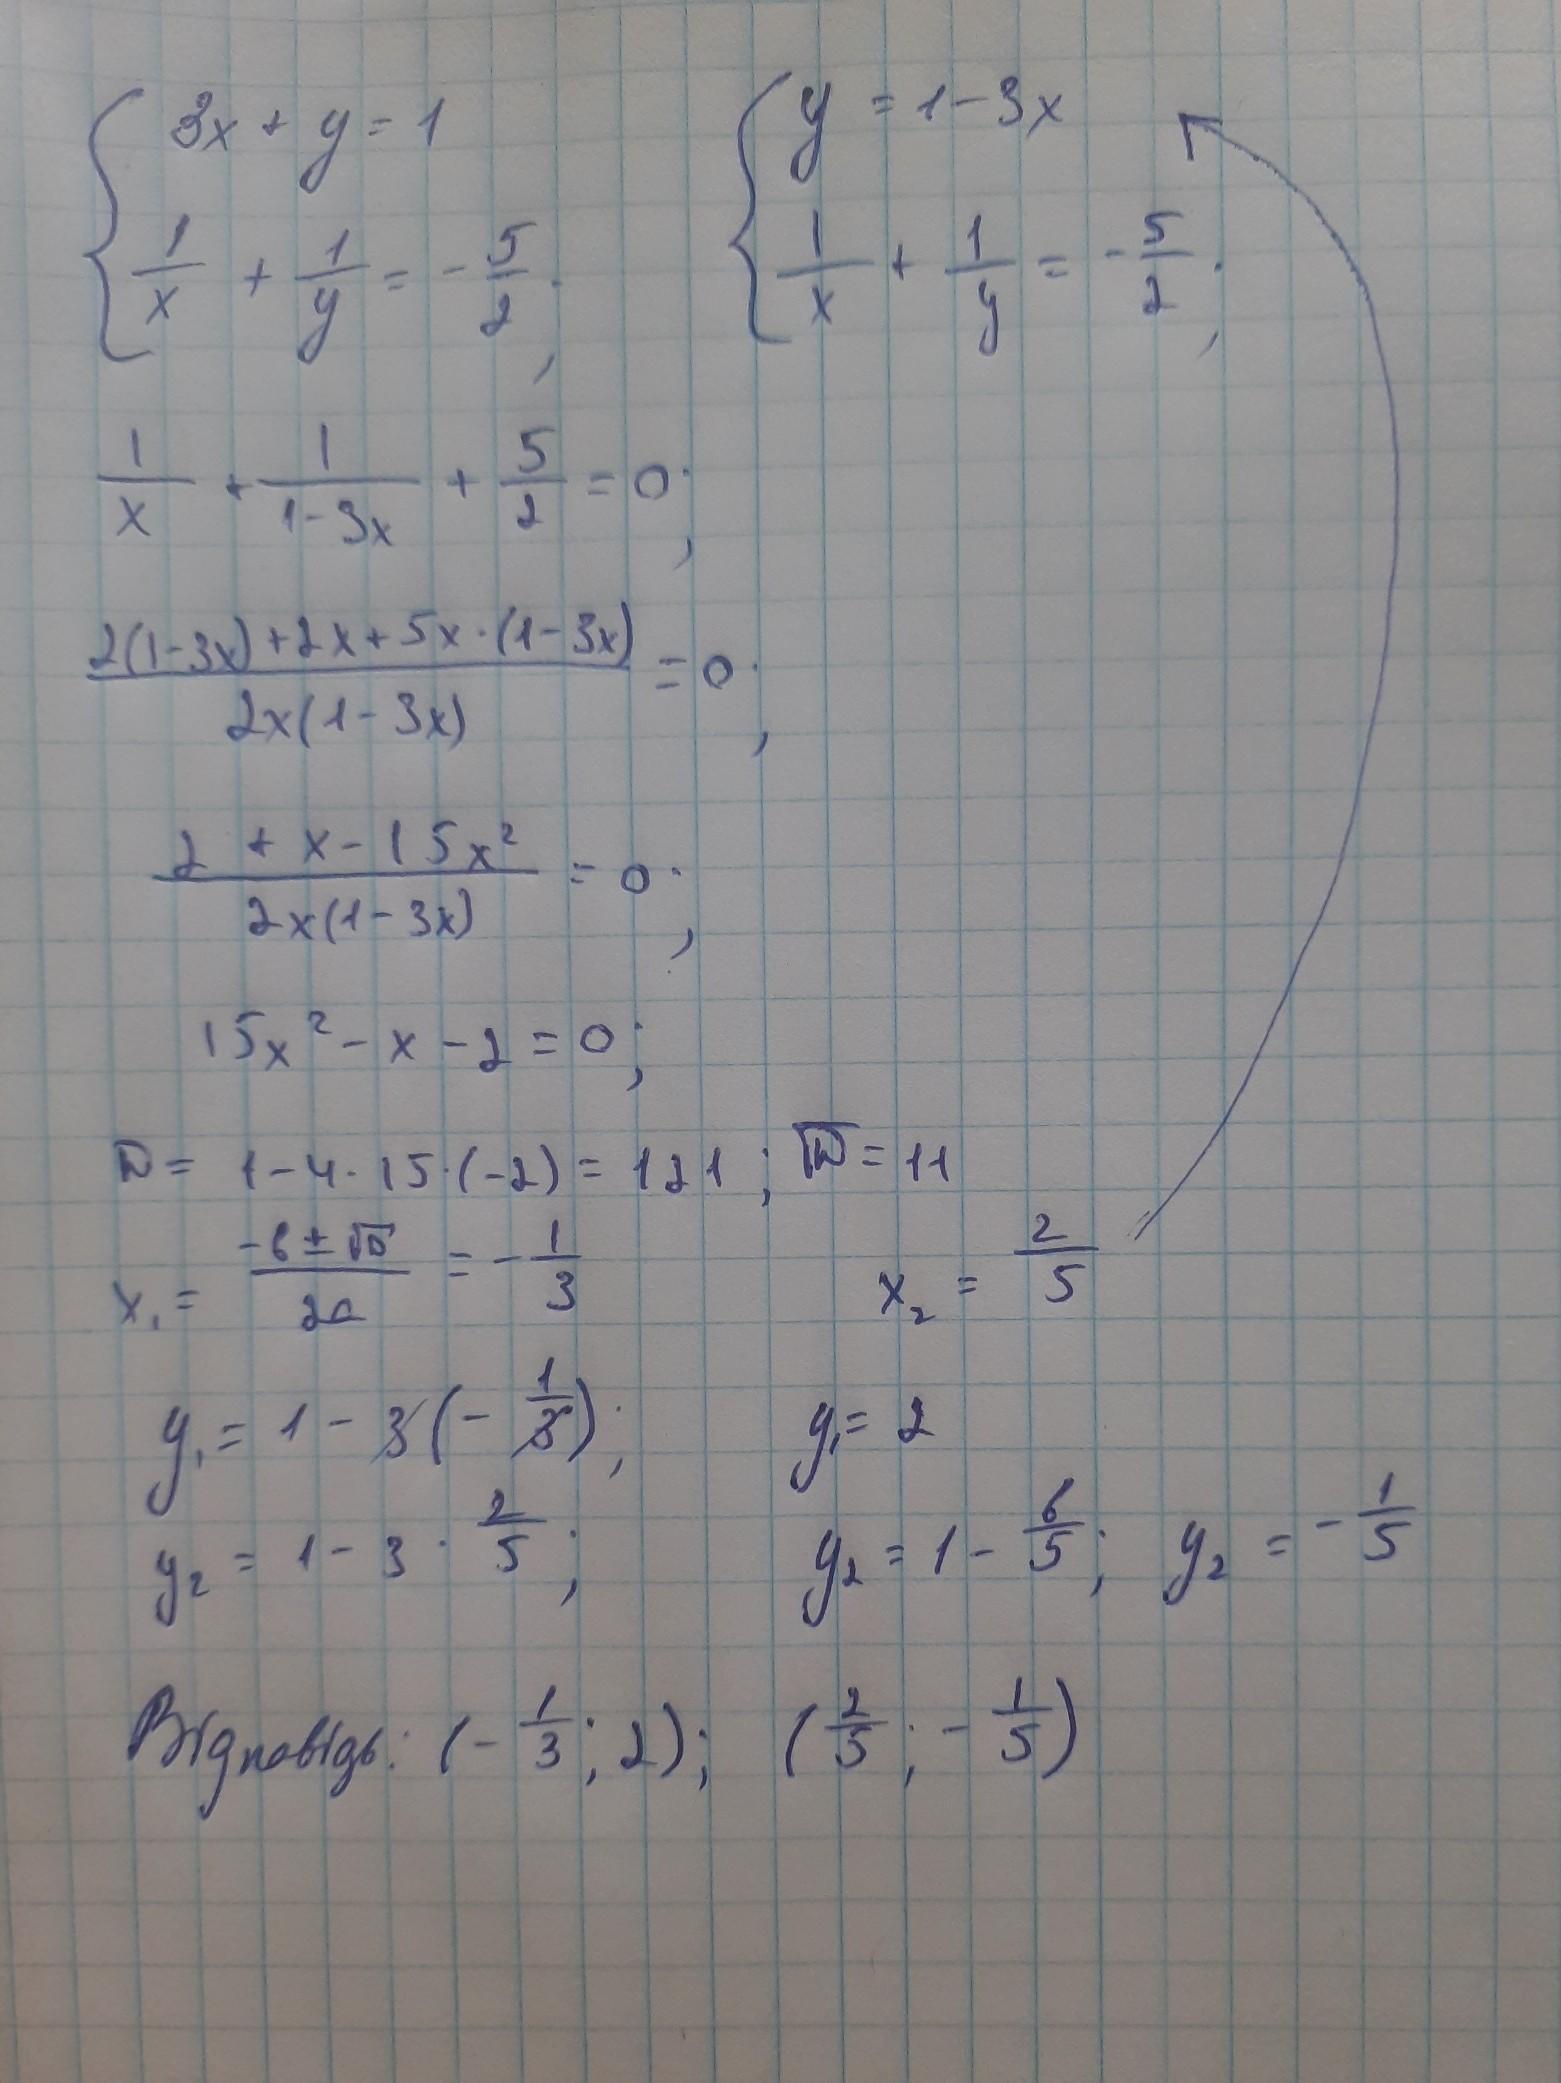 { 3x + y = 1
1/x + 1/y = - 5/2 ;
{ y = 1 - 3x
1/x + 1/y = - 5/2 ;
1/x + 1/(1 - 3x) + 5/2 = 0 ;
(2(1-3x)+2x+5x·(1-3x))/(2x(1-3x)) = 0 ;
(2 + x - 15x²)/(2x(1-3x)) = 0 ;
15x² - x - 2 = 0 ;
D = 1 - 4 · 15 · (-2) = 121 ; √D = 11
x₁ = (-b ± √D)/2a = - 1/3 x₂ = 2/5
y₁ = 1 - 3(- 1/3) ; y₁ = 2
y₂ = 1 - 3 · 2/5 ; y₂ = 1 - 6/5 ; y₂ = - 1/5
Відповідь: (- 1/3 ; 2) ; (2/5 ; - 1/5)